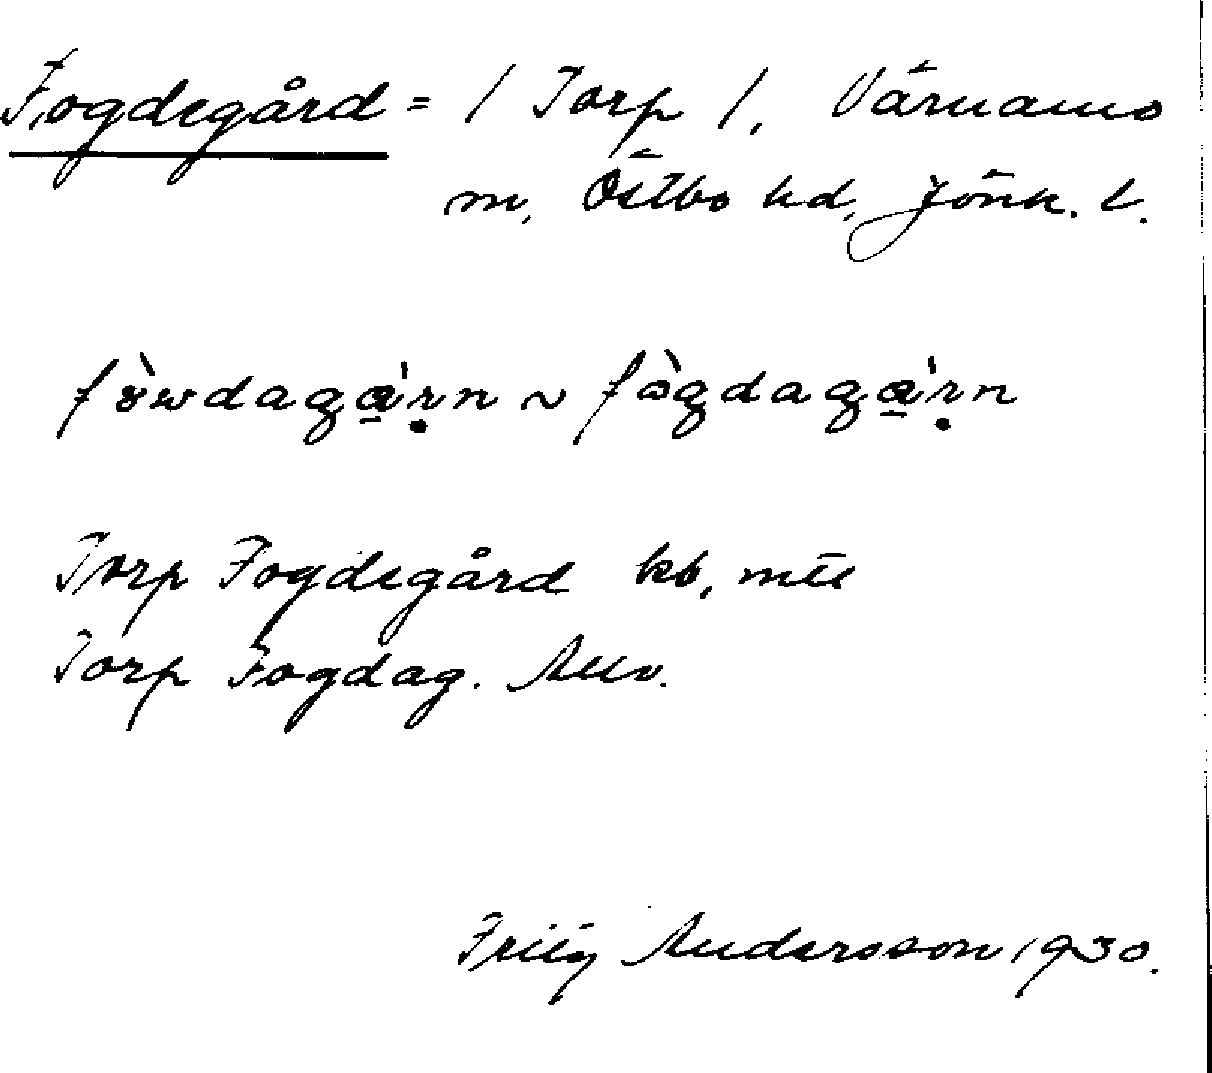 Fogdegård = / Torp /, Värnamo
sn, Östbo hd, Jönk. l.
fòwdagɑ̠'ṛn ~ fògdagɑ̠'ṛn
Torp Fogdegård kb,
Torp Fogdag.
Andersson 1930.